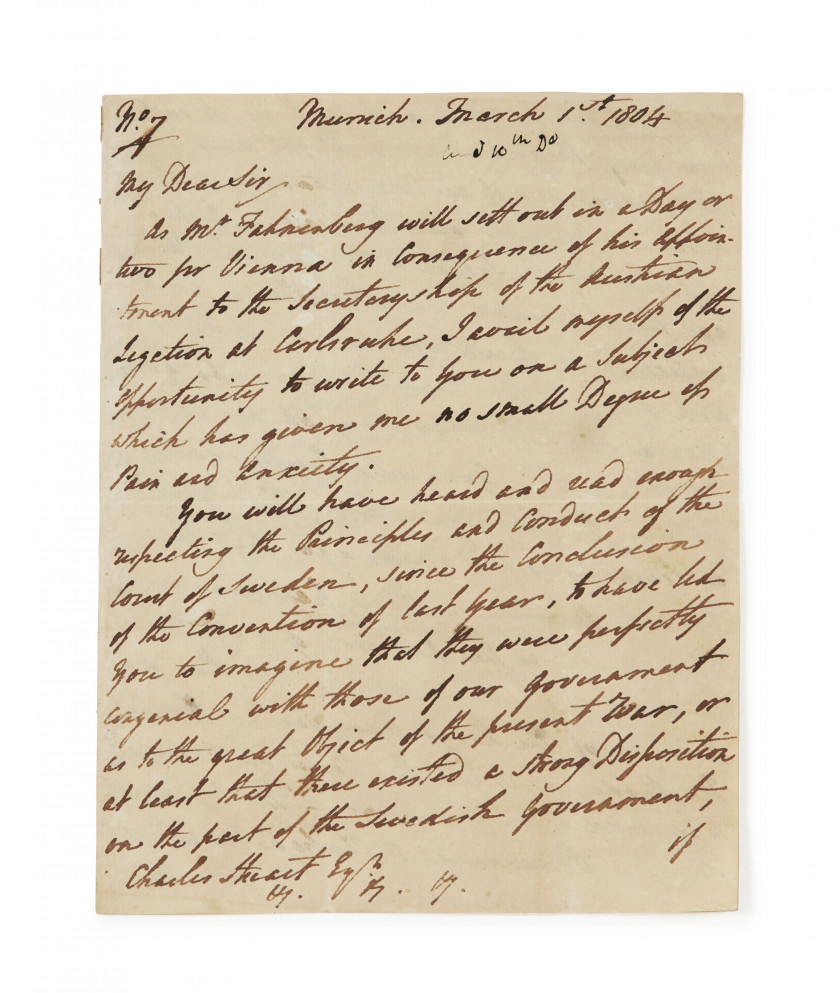 No. 7
Munich. March 1st. 1804
10th Do
My Dear Sir
As Mr Fahnenberg will sett out in a Day or
two for Vienna in Consequence of his Appoin-
tment to the Secretaryship of the Austrian
Legation at Carlsruhe, I avail myself of the
opportunity to write to You on a Subject
which has given me no small Degree of
Pain and Anxiety.
You will have heard and read enough
respecting the Principles and Conduct of the
Court of Sweden, since the Conclusion
of the Convention of last Year, to have led
You to imagine that they were perfectly
congenial with those of our Government
as to the great Object of the present War, or
at least that there existed a strong Disposition
on the part of the Swedish Government,
if
Charles Stuart Esqr
&. &. &.